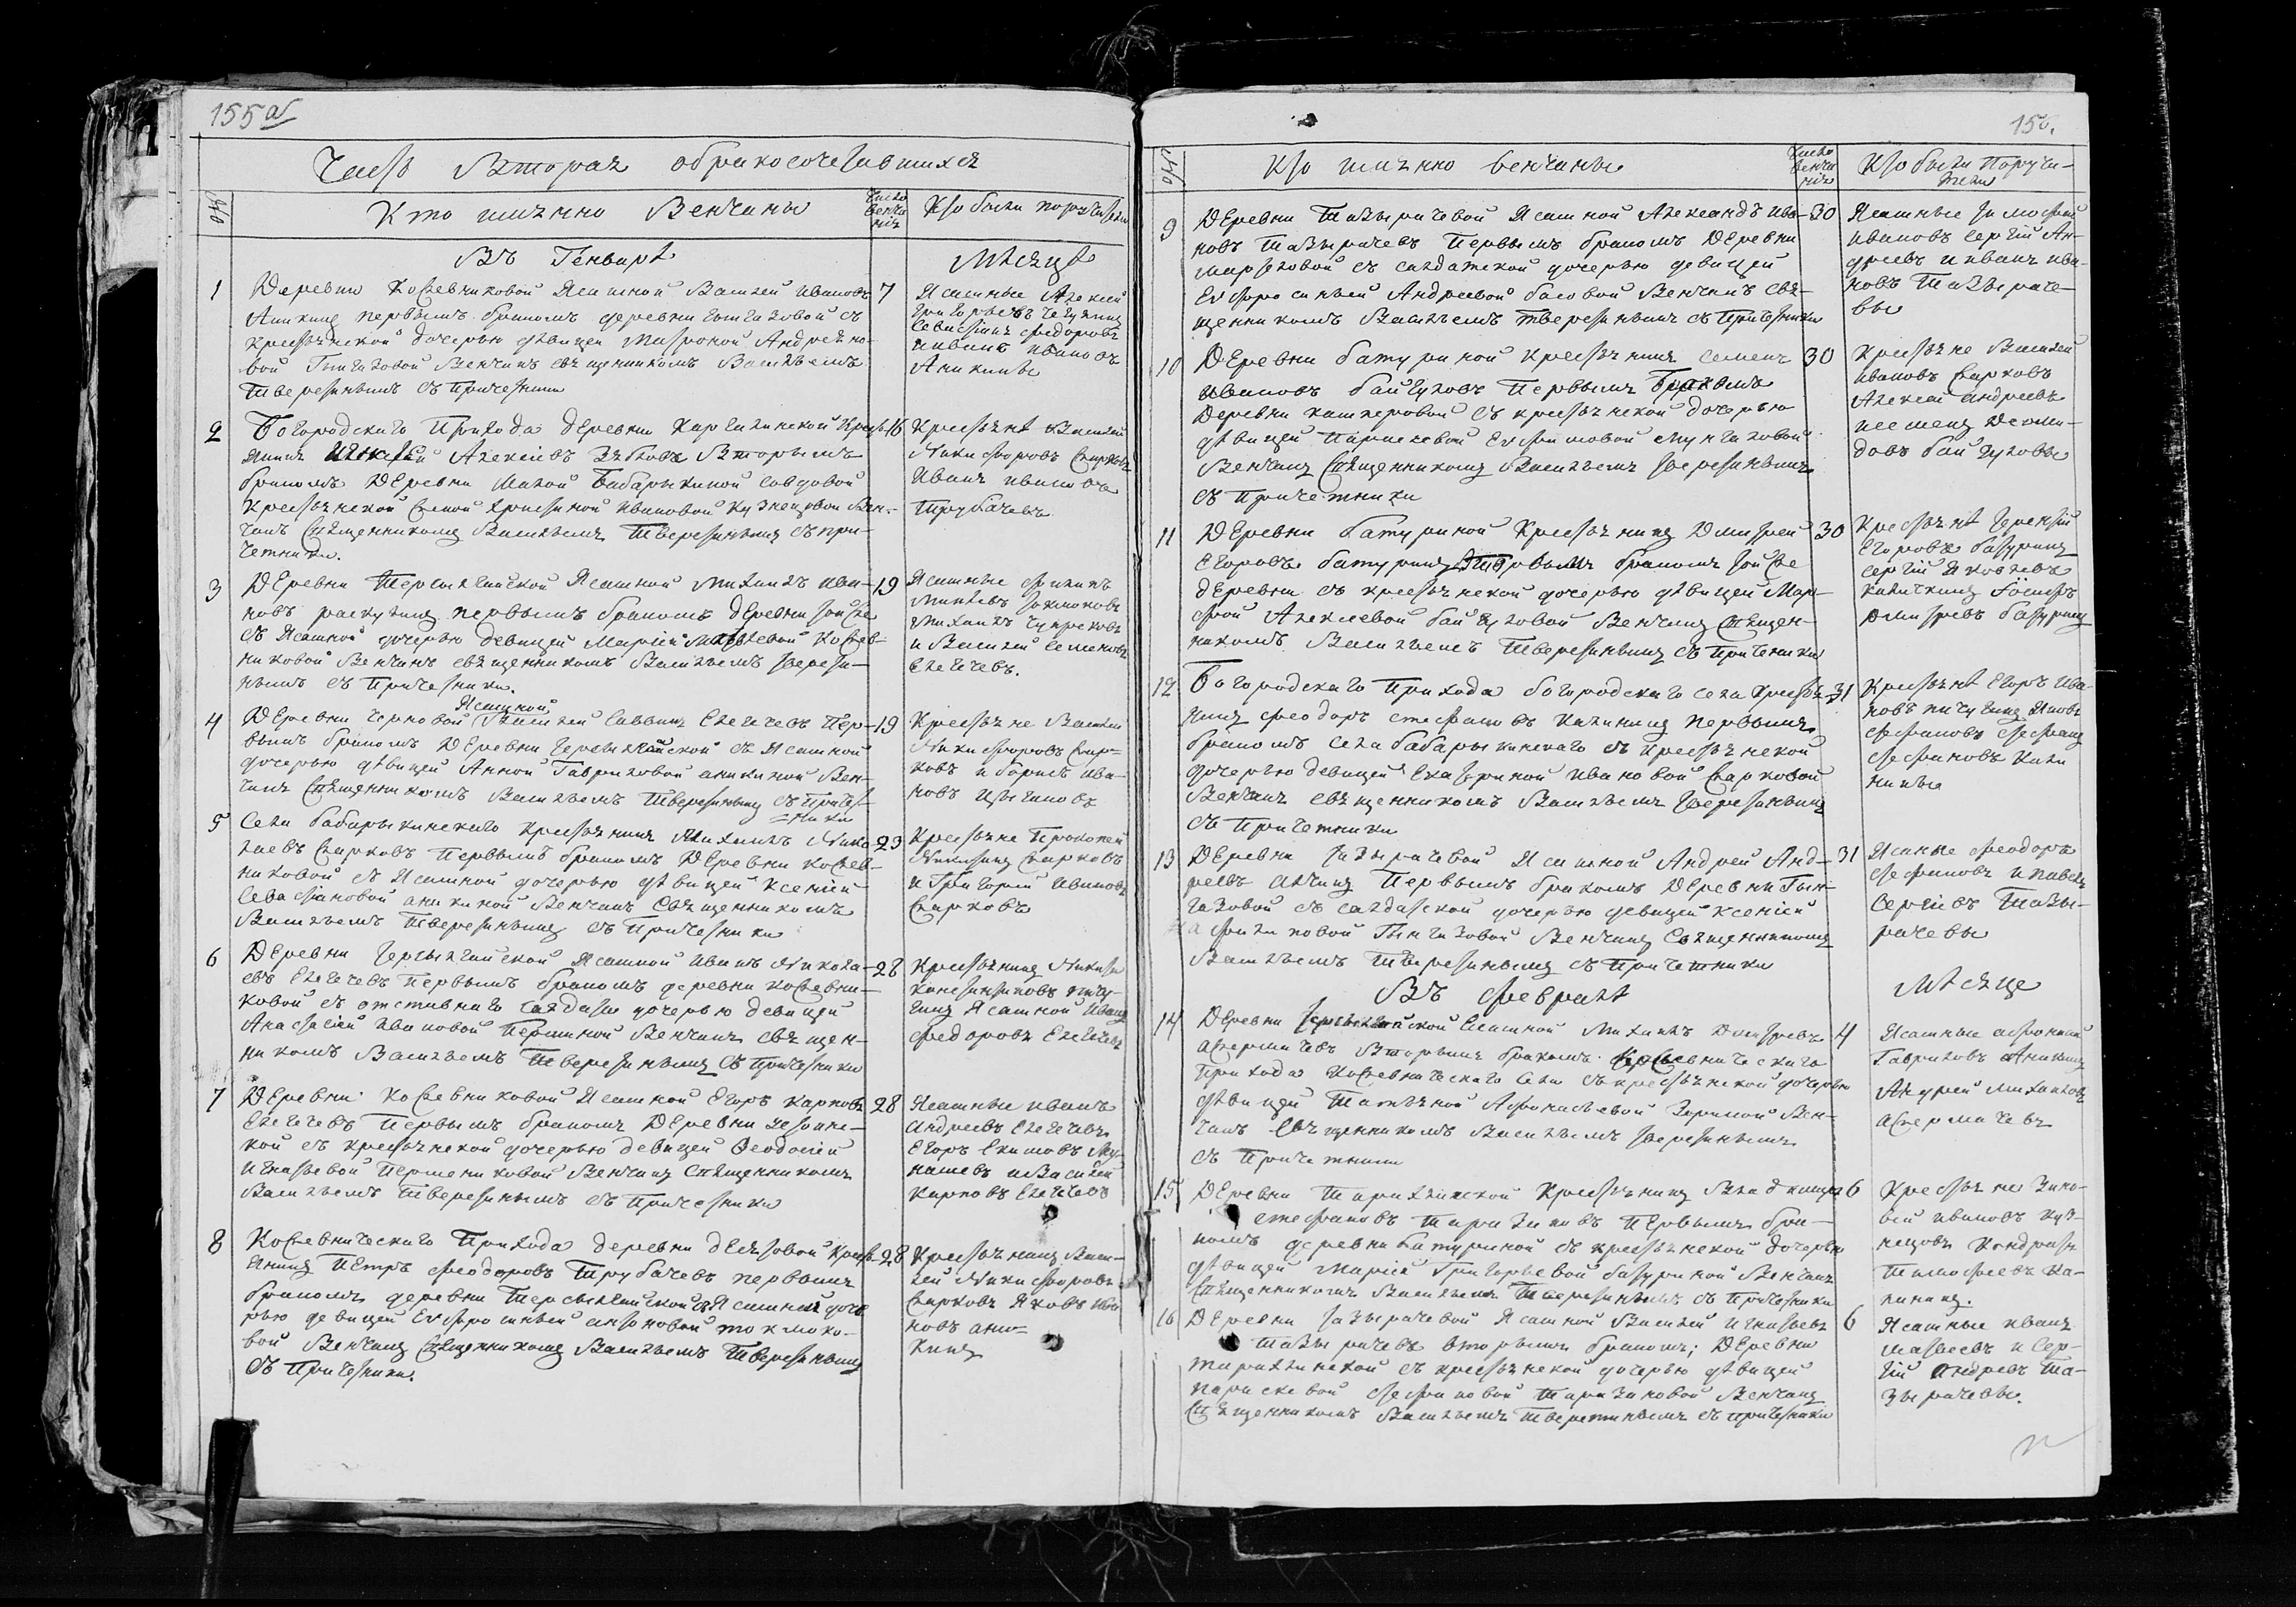 155 об
Часть Вторая о бракосочетавшихся
№
Кто именно Венчаны
Число венчания
Кто были поручители
Въ Генварѣ
Мѣсяцѣ
1
Деревни Кожевниковой Ясашной Василей Ивановъ
7
Аникинъ первымъ бракомъ деревни Тынгизовой съ
крестьянской дочерью дѣвицей Матроной Андреяно-
вой Тынгизовой Венчанъ священникомъ Васильемъ
Тверетинымъ съ Причетники
Ясашные Алексей
Григорьевъ
Севастьянъ Федоровъ
и Иванъ Ивановъ
Аникины
2
Богородскаго Прихода Деревни Каргалинской Кресть-
16
янинъ Алексей Алексеевъ Зыковъ Вторымъ
бракомъ Деревни Малой Бабарыкиной со вдовой
Крестьянской женой Христиной Ивановой Кузнецовой Вен-
чанъ Священникомъ Васильемъ Тверетинымъ съ при-
четники.
Крестьянѣ Василей
Никифоровъ Жарковъ
Иванъ Ивановъ
Трубачевъ
3
Деревни Терсылгайской Ясашной Михаилъ Ива-
19
новъ первымъ бракомъ Деревни той же
съ Ясашной дочерью девицей Марией Матвеевой Кожев-
никовой Венчанъ священникомъ Васильемъ Верети-
нымъ съ Причетники.
Ясашные Филипъ
Михаилъ
и Василей Семеновъ
Елегечевъ.
4
Ясашной
Деревни Черновой Василей Саввинъ Елегечевъ Пер-
19
вымъ бракомъ Деревни Терсылгайской съ Ясашной
дочерью дѣвицей Анной Гавриловой Аникиной Вен-
чанъ Священникомъ Васильемъ Тверетинымъ съ Причет-
ники
Крестьяне Василей
Никифоровъ Жар-
ковъ и Борисъ Ива-
новъ Цыгановъ
5
Села Бабарыкинскаго Крестьянинъ Михаилъ Нико-
23
лаевъ Жарковъ Первымъ бракомъ Деревни Кожев-
никовой съ Ясашной дочерью дѣвицей Ксенией
Севастиановой Аникиной Венчанъ Священникомъ
Васильемъ Тверетинымъ съ Причетники
Крестьяне Прокопей
Никитинъ Жарковъ
и Григорий Ивановъ
Жарковъ
6
Деревни Терсылгайской Ясашной Иванъ Никола-
28
евъ Елегечевъ первымъ бракомъ деревни Кожевни-
ковой съ отставнаго солдата дочерью девицей
Анастасией Ивановой Першиной Венчанъ священ-
никомъ Васильемъ Тверетинымъ съ Причетники
Крестьянинъ Никита
Константиновъ Пичу-
гинъ Ясашной Иванъ
Федоровъ Елегечевъ
7
Деревни Кожевниковой Ясашной Егоръ Карповъ
28
Елегечевъ Первымъ бракомъ Деревни
кой съ крестьянской дочерью девицей Феодосией
Игнатьевой Першениковой Венчанъ Священникомъ
Васильемъ Тверетинымъ съ Причетники
Ясашные Иванъ
Андреевъ Елегечевъ
Егоръ Екимовъ
и Василей
Карповъ Елегечевъ
8
Кожевническаго Прихода деревни Десятовой Кресть-
28
янинъ Петръ Феодоровъ Трубачевъ первымъ
бракомъ деревни Терсылгайской съ Ясашной доче-
рью девицей Евфросиньей Токмоко-
вой Венчанъ Священникомъ Васильемъ Тверетинымъ
съ Причетники.
Крестьянинъ Васи-
лей Никифоровъ
Жарковъ Яковъ Ива-
новъ Ани-
кинъ
156.
№
Кто именно венчаны
Число венчания
Кто были Поручи-
тели
9
Деревни Тазырачевой Ясашной Александръ Ива-
30
новъ Тазырачевъ Первымъ бракомъ Деревни
съ салдатской дочерью девицей
Евфросиньей Андреевой Венчанъ Свя-
щенникомъ Васильемъ Тверетинымъ съ Причетники
Ясашные Тимофей
Ивановъ Сергий Ан-
дреевъ и Иванъ Ива-
новъ Тазыраче-
вы
10
Деревни Батуриной Крестьянинъ Семенъ
30
Ивановъ Байгуловъ Первымъ Бракомъ
Деревни съ крестьянской дочерью
дѣвицей Парасковой Евфимовой
Венчанъ Священникомъ Васильемъ Тверетинымъ
съ Причетники
Крестьяне Василей
Ивановъ Жарковъ
Алексей Андреевъ
и Семенъ Деми-
довъ Байгуловы
11
Деревни Батуриной Крестьянинъ Дмитрей
30
Егоровъ Батуринъ Первымъ бракомъ той же
деревни съ крестьянской дочерью дѣвицей Мар-
фой Алексеевой Байгуловой Венчанъ Священ-
никомъ Васильемъ Тверетинымъ съ Причетники
Крестьянѣ Терентий
Егоровъ Батуринъ
Сергий Яковлевъ
Дмитревъ Батуринъ
12
Богородскаго Прихода Богородскаго села Кресть-
31
янинъ Феодоръ Стефановъ Калининъ первымъ
бракомъ Села Бабарыкинскаго съ крестьянской
дочерью девицей Екатериной Ивановой Жарковой
Венчанъ священникомъ Васильемъ Тверетинымъ
съ Причетники
Крестьянѣ Егоръ Ива-
новъ Пичугинъ Яковъ
Стефановъ Стефанъ
Стефановъ Кали-
нины
13
Деревни Тазырачевой Ясашной Андрей Анд-
31
реевъ Первымъ бракомъ Деревни Тын-
газовой съ салдатской дочерью девицей Ксенией
Филиповой Тынгизовой Венчанъ Священникомъ
Васильемъ Тверетинымъ съ Причетники
Ясашные Феодоръ
Стефановъ и Павелъ
Сергиевъ Тазы-
рачевы
Въ Февралѣ
Мѣсяце
14
Деревни Терсылгайской Ясашной Михаилъ Дмитревъ
4
Ажермачевъ Вторымъ бракомъ Кожевническаго
Прихода Кожевническаго Села съ крестьянской дочерью
дѣвицей Татьяной Афонасьевой Зориной Вен-
чанъ Священникомъ Васильемъ Тверетинымъ
съ Причетники
Ясашные Афонасий
Гавриловъ Аникинъ
Андрей Михаиловъ
Ажермачевъ
15
Деревни Таралинской Крестьянинъ Владимиръ
6
Стефановъ Таразановъ Первымъ бра-
комъ деревни Батуриной съ крестьянской дочерью
дѣвицей Марией Григорьевой Батуриной Венчанъ
Священникомъ Васильемъ Тверетинымъ съ Причетники
Крестьяне Зино-
вий Ивановъ Куз-
нецовъ Кондратий
Тимофеевъ Ка-
нинъ.
16
Деревни Тазырачевой Ясашной Василей Игнатьевъ
6
Тазырачевъ вторымъ бракомъ; Деревни
Таралинской съ крестьянской дочерью дѣвицей
Параскевой Стефановой Таразановой Венчанъ
Священникомъ Васильемъ Тверетинымъ съ причетники
Ясашные Иванъ
Матвеевъ и Сер-
гий Андреевъ Та-
зырачевы.